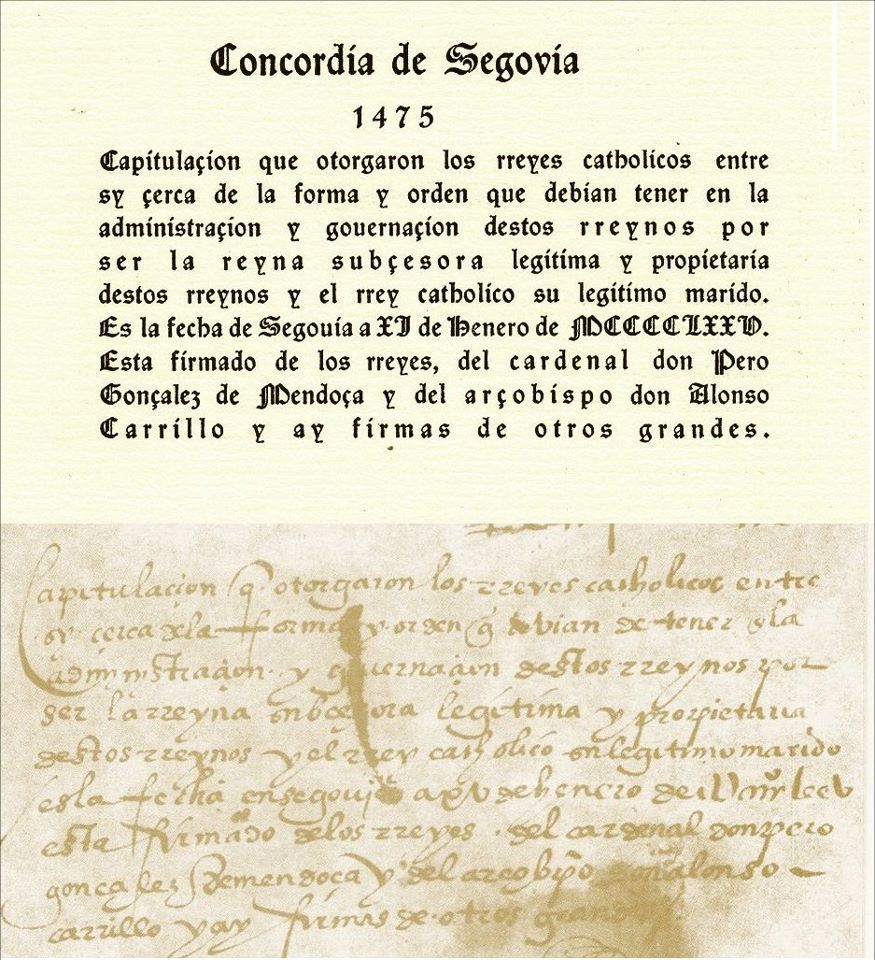 Concordia de Segovia
1475
Capitulaçion que otorgaron los rreyes catholicos entre
sy çerca de la forma y orden que debian tener en la
administraçion y gouernaçion destos rreynos por
ser la reyna subçesora legitima y propietaria
destos rreynos y el rrey catholico su legitimo marido.
Es la fecha de Segouia a XI de Henero de MCCCCLXXV.
Esta firmado de los rreyes, del cardenal don Pero
Gonçalez de Mendoça y del arçobispo don Alonso
Carrillo y ay firmas de otros grandes.
Capitulacion q. otorgaron los rreyes catholicos entre
sy cerca dela forma y orden q̃ devian de tener ẽla
administraçion y guvernaçion destos rreynos por
ser la rreyna subcesora legitima y propietaria
destos rreynos y el rrey catholico su legitimo marido
es la fecha en segovia a xv de henero de
esta firmado delos rreyes . del cardenal don pero
gonçalez de mendoça y del arcobpo don alonso
carrillo y ay firmas de otros